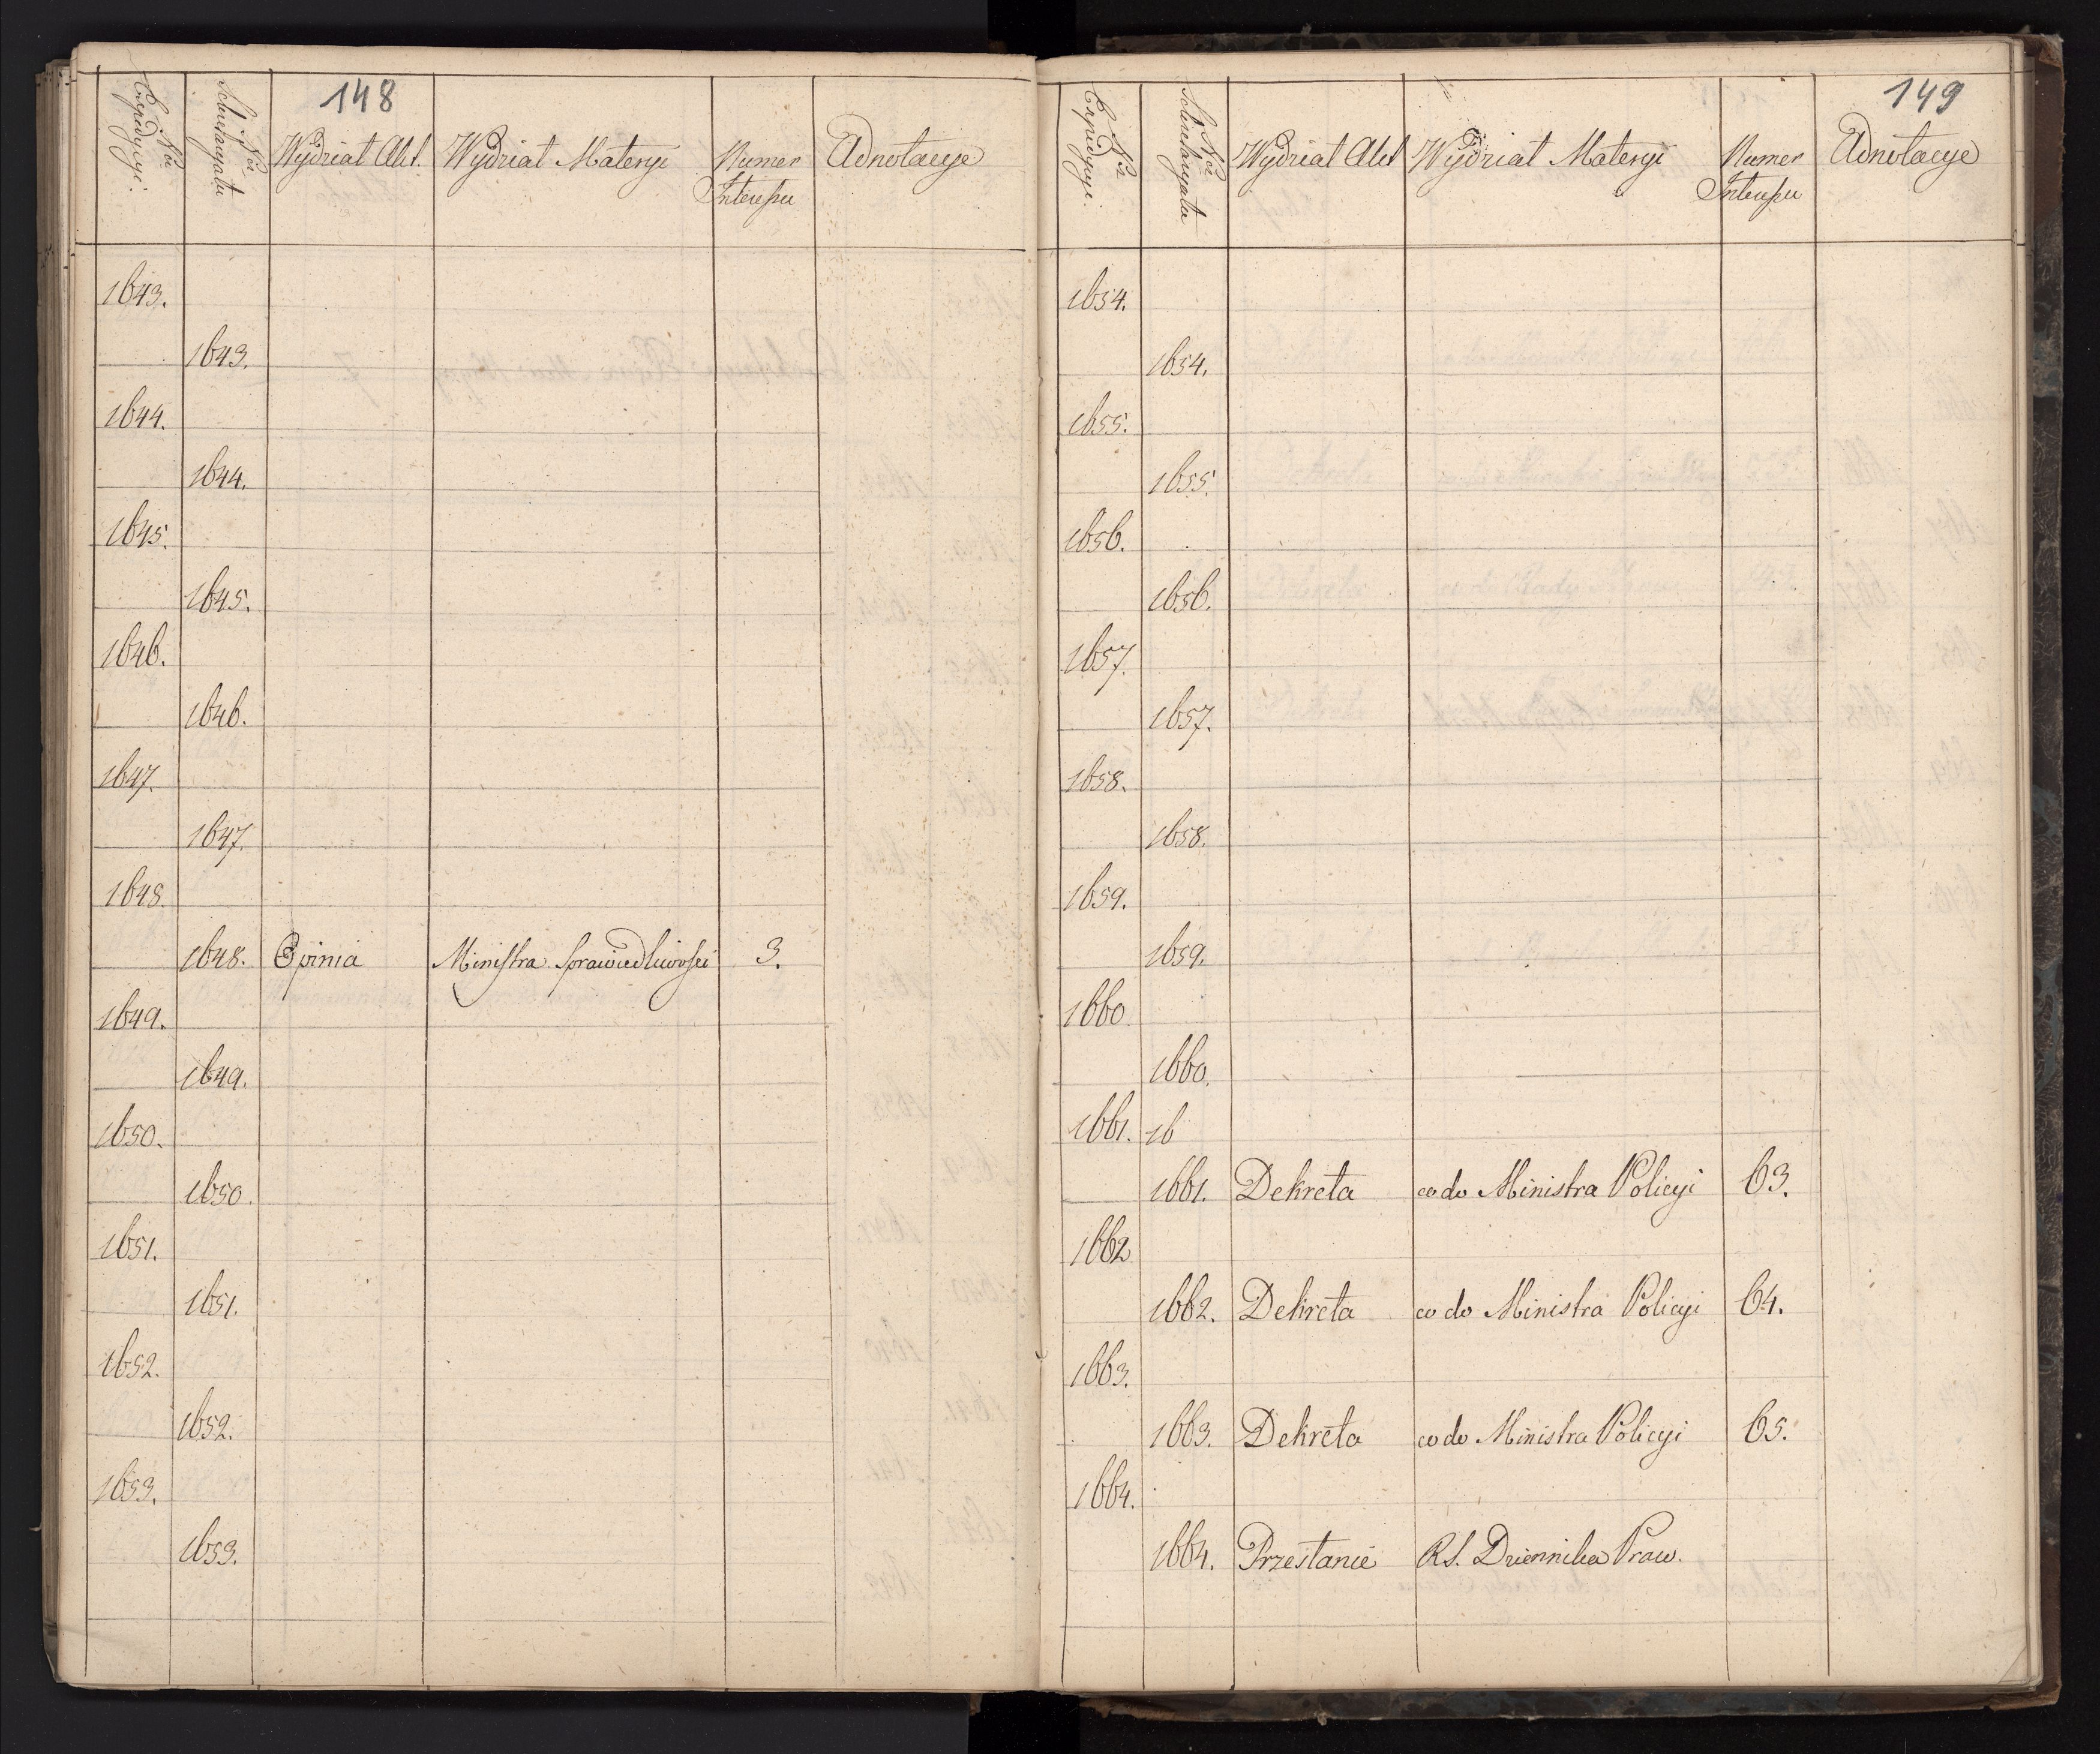 148
Nro Expedycyi.
Nro Sekretaryatu
Wydział Akt.
Wydział Materyi
Numer Interessu
Adnotacye
1643.
1643.
1644.
1644.
1645.
1645.
1646.
1646.
1647.
1647.
1648
1648. Opinia Ministra Sprawiedliwości 3.
1649.
1649.
1650.
1650.
1651.
1651.
1652.
1652.
1653.
1653.
149
Nro Expedycyi.
Nro Sekretaryatu
Wydział Akt
Wydział Materyi
Numer Interessu
Adnotacye
1654.
1654.
1655.
1655.
1656.
1656.
1657.
1657.
1658.
1658.
1659.
1659.
1660
1660.
1661. 16
1661. Dekreta co do Ministra Policyi 63.
1662
1662. Dekreta co do Ministra Policyi 64.
1663.
1663. Dekreta co do Ministra Policyi 65.
1664.
1664. Przesłanie Dziennika Praw.